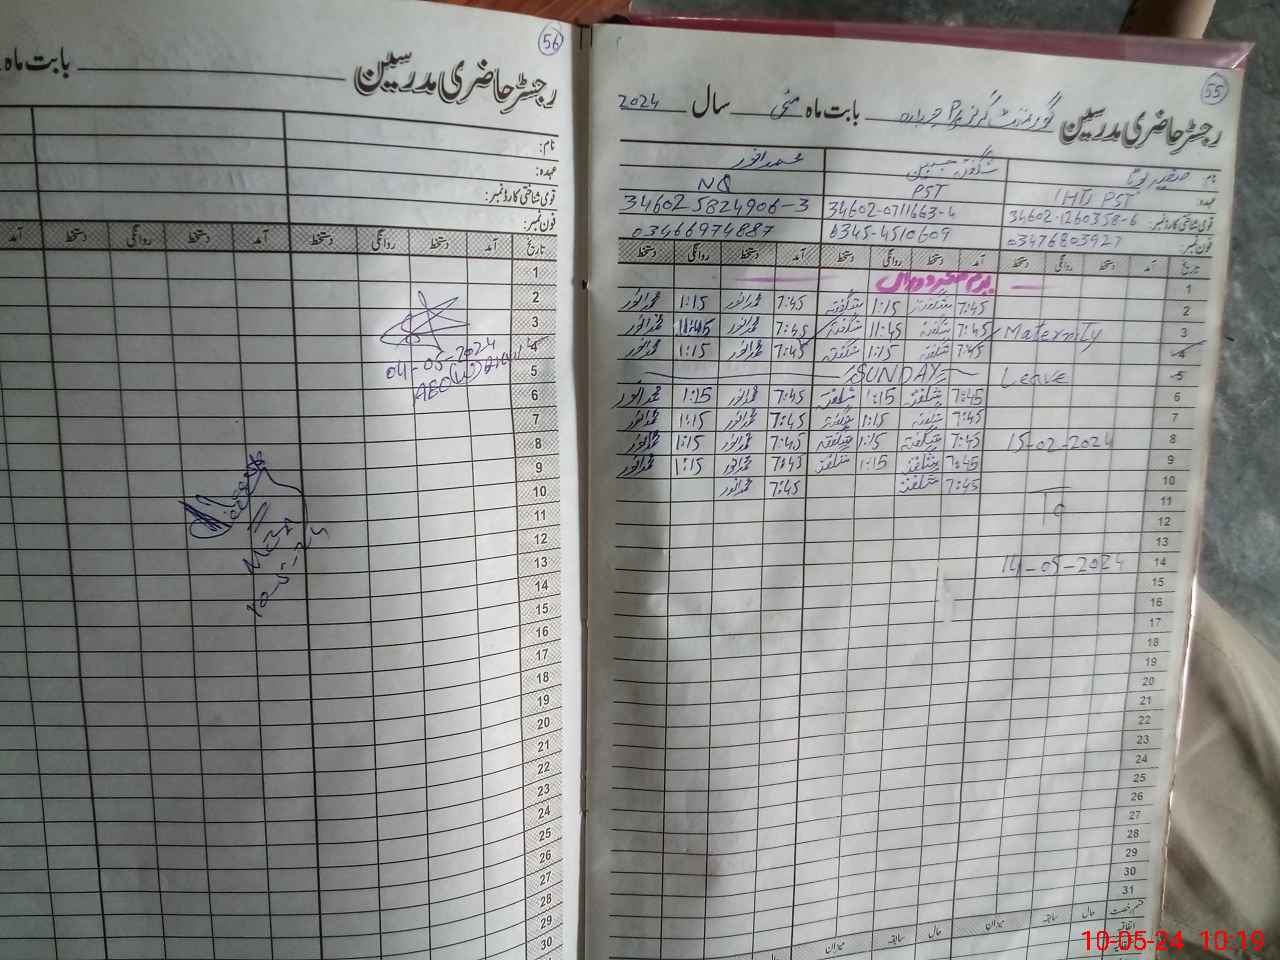 55
رجسٹر حاضری مدرسین گورنمنٹ گرلز P بابت ماہ مئی سال 2024
نام
شگفتہ جبیں
محمد انور
عہدہ
PST
NQ
قومی شناختی کارڈ نمبر: 34602-1260358-6 34602-0711663-4 34602 5824906-3
فون نمبر: 03476803927 0345-4510609 03466974887
تاریخ آمد دستخط روانگی دستخط آمد دستخط روانگی دستخط آمد دستخط روانگی دستخط
1 یوم مزدوراں
2 7:45 شگفتہ 1:15 شگفتہ 7:45 محمد انور 1:15 محمد انور
3 Maternity 7:45 شگفتہ 11:45 شگفتہ 7:45 محمد انور 11:45 محمد انور
4 7:45 شگفتہ 1:15 شگفتہ 7:45 محمد انور 1:15 محمد انور
5 Leave SUNDAY
6 7:45 شگفتہ 1:15 شگفتہ 7:45 محمد انور 1:15 محمد انور
7 7:45 شگفتہ 1:15 شگفتہ 7:45 محمد انور 1:15 محمد انور
8 15-02-2024 7:45 شگفتہ 1:15 شگفتہ 7:45 محمد انور 1:15 محمد انور
9 7:45 شگفتہ 1:15 شگفتہ 7:45 محمد انور 1:15 محمد انور
10 7:45 شگفتہ 7:45 محمد انور
11 To
12
13
14 14-05-2024
15
16
17
18
19
20
21
22
23
24
25
26
27
28
29
30
31
قسم رخصت حال سابقہ میزان حال سابقہ میزان حال
اتفاقیہ
56
رجسٹر حاضری مدرسین بابت ماہ
نام:
عہدہ:
قومی شناختی کارڈ نمبر:
فون نمبر:
تاریخ آمد دستخط روانگی دستخط آمد دستخط روانگی دستخط آمد
1
2
3
4 04-05-2024
5
6
7
8
9
10
11
12
13 10-5-24
14
15
16
17
18
19
20
21
22
23
24
25
26
27
28
29
30
10-05-24 10:19